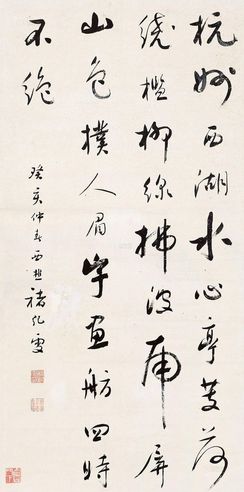 杭州西湖水心亭芰荷
繞檻柳線拂波南屏
山色撲人眉宇畫舫四時
不絕
癸亥仲春西樵褚紀雯